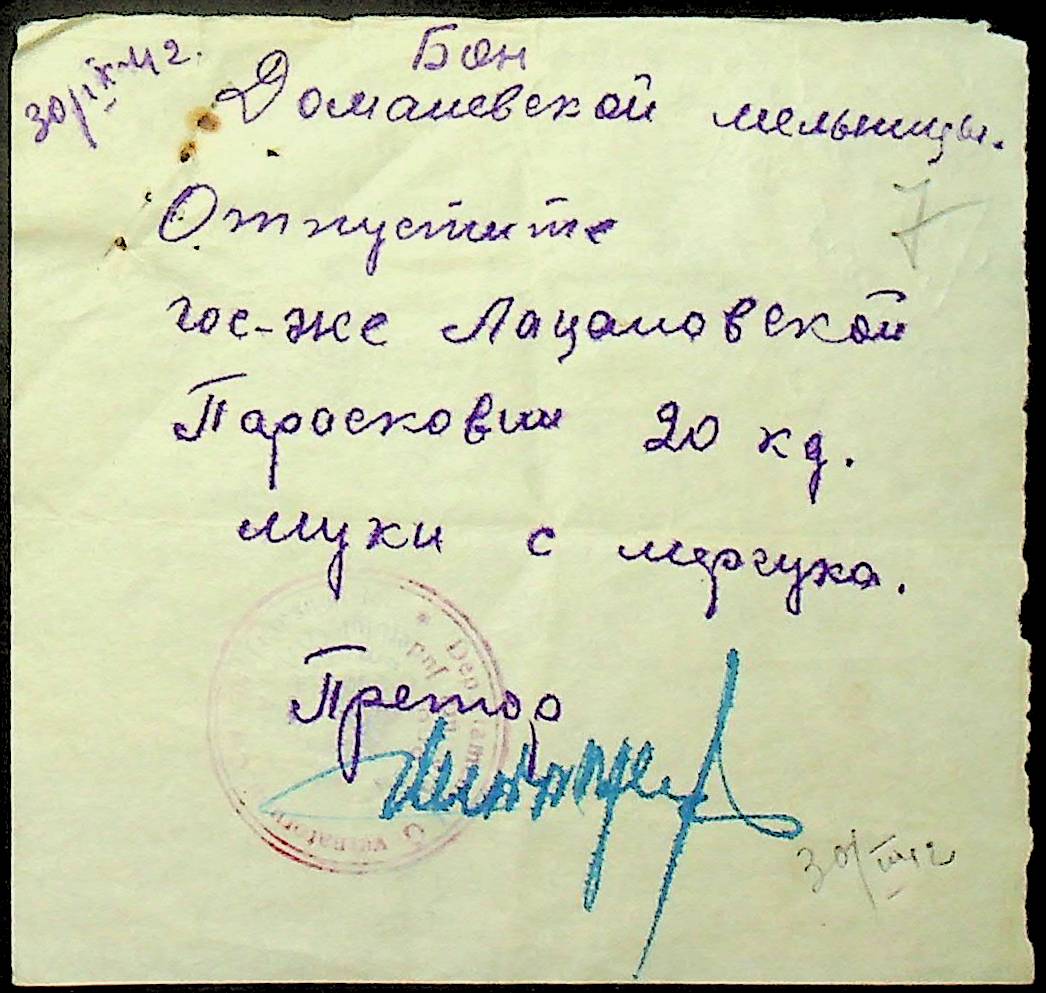 Бон
Доманевской мельницы.
7
Отпустите
гос-же Лацановской
Парасковии 20 кг.
муки с мерчука.
Претор